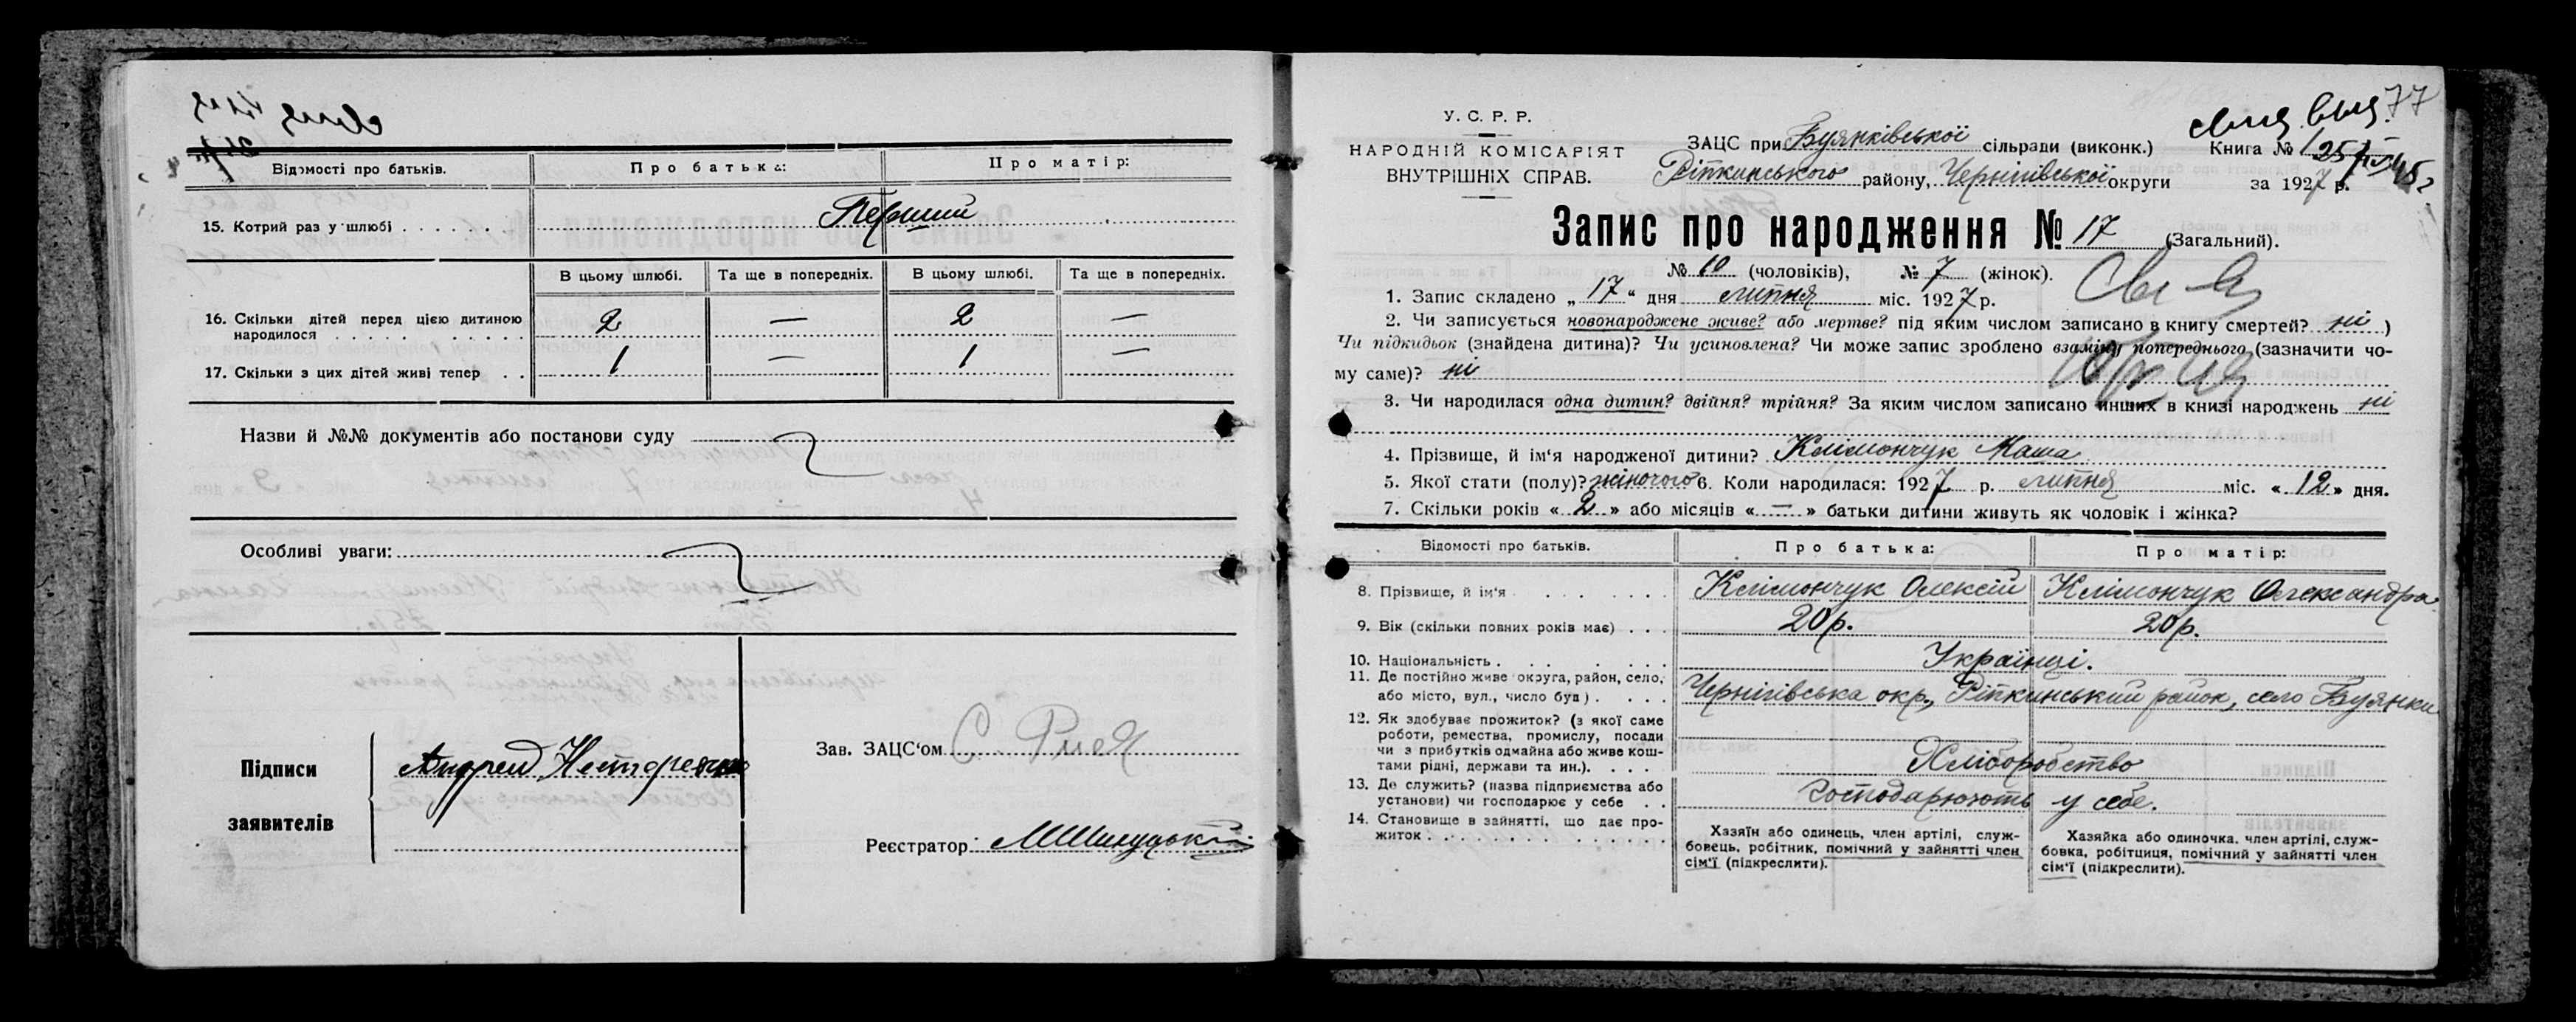 Відомості про батьків.
Про батька:
Про матір:
15. Котрий раз у шлюбі . . . . . . .
Перший
В цьому шлюбі.
Та ще в попередніх.
В цьому шлюбі.
Та ще в попередніх.
16. Скільки дітей перед цією дитиною
народилося . . . . . . . . . . .
2 — 2 —
17. Скільки з цих дітей живі тепер . .
1 — 1 —
Назви й №№ документів або постанови суду
Особливі уваги:
Підписи
заявителів
Андрей Нестеренко
Зав. ЗАЦС‘ом
Реєстратор
77
У. С. Р. Р.
НАРОДНІЙ КОМІСАРІЯТ
ВНУТРІШНІХ СПРАВ.
ЗАЦС при Буянківської сільради (виконк.)
Книга № 1
Ріпкинського району, Чернігівської округи
за 1927 р.
Запис про народження № 17 (Загальний).
№ 10 (чоловіків), № 7 (жінок).
1. Запис складено „17“ дня липня міс. 1927 р.
2. Чи записується новонароджене живе? або мертве? під яким числом записано в книгу смертей? ні )
Чи підкидьок (знайдена дитина)? Чи усиновлена? Чи може запис зроблено взаміну попереднього (зазначити чо-
му саме)? ні
3. Чи народилася одна дитин? двійня? трійня? За яким числом записано инших в книзі народжень ні
4. Прізвище, й ім‘я народженої дитини? Клімончук Маша
5. Якої стати (полу)? жіночого 6. Коли народилася: 1927 р. липня міс. «12» дня.
7. Скільки років «2» або місяців «—» батьки дитини живуть як чоловік і жінка?
Відомості про батьків.
Про батька:
Про матір:
8. Прізвище, й ім‘я . . . . . .
Клімончук Олексій
Клімончук Олександра
9. Вік (скільки повних років має) . . .
20 р.
20 р.
10. Національність . . . . . . .
Українці.
11. Де постійно живе округа, район, село,
або місто, вул., число буд) . . . .
Чернігівська окр., Ріпкинський район, село Буянки
12. Як здобуває прожиток? (з якої саме
роботи, ремества, промислу, посади
чи з прибутків одмайна або живе кош-
тами рідні, держави та ин.). . . . .
Хліборобство
13. Де служить? (назва підприємства або
установи) чи господарює у себе . .
Господарюють у себе.
14. Становище в зайнятті, що дає про-
житок . . . . . . . . . . . . .
Хазяїн або одинець, член артілі, служ-
бовець, робітник, помічний у зайнятті член
сім‘ї (підкреслити).
Хазяйка або одиночка, член артілі, служ-
бовка, робітниця, помічний у зайнятті член
сім‘ї (підкреслити).